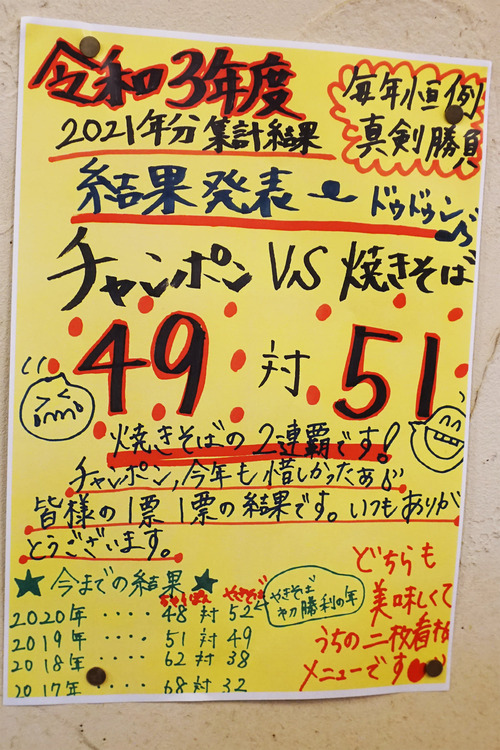 令和3年度
毎年恒例
真剣勝負
2021年分集計結果
結果発表
ドゥドゥン
チャンポン VS 焼きそば
49 対 51
焼きそばの2連覇です!
チャンポン,今年も惜しかったぁ
皆様の1票1票の結果です。いつもありが
とうございます。
★今までの結果★
ちゃんぽん やきそば
2020年 ････ 48 対 52
やきそば
初勝利の年
2019年 ････ 51 対 49
2018年 ････ 62 対 38
2017年 ････ 68 対 32
どちらも
美味しくて
うちの二枚看板
メニューです